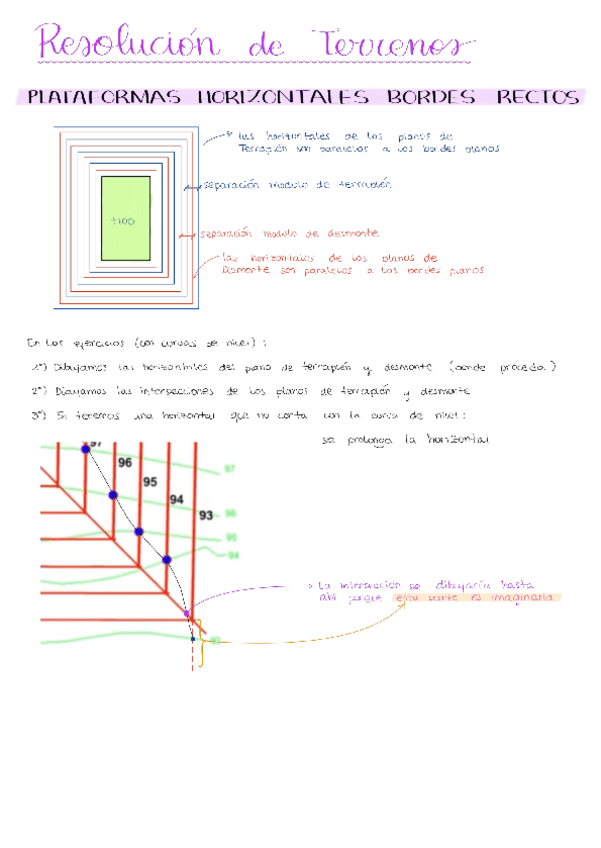 Resolución de Terrenos
PLATAFORMAS HORIZONTALES BORDES RECTOS
las horizontales de los planos de
Terraplén son paralelos a los bordes planos
separación modulo de terraplén
+100
separación modulo de desmonte
las horizontales de los planos de
Desmonte son paralelos a los bordes planos
En los ejercicios (con curvas de nivel) :
1º) Dibujamos las horizontales del plano de terraplén y desmonte (donde proceda)
2º) Dibujamos las intersecciones de los planos de terraplén y desmonte
3º) Si tenemos una horizontal que no corta con la curva de nivel :
se prolonga la horizontal
97
96
97
95
94
93
96
95
94
La intersección se dibujaría hasta
ahí porque esta parte es imaginaria
93